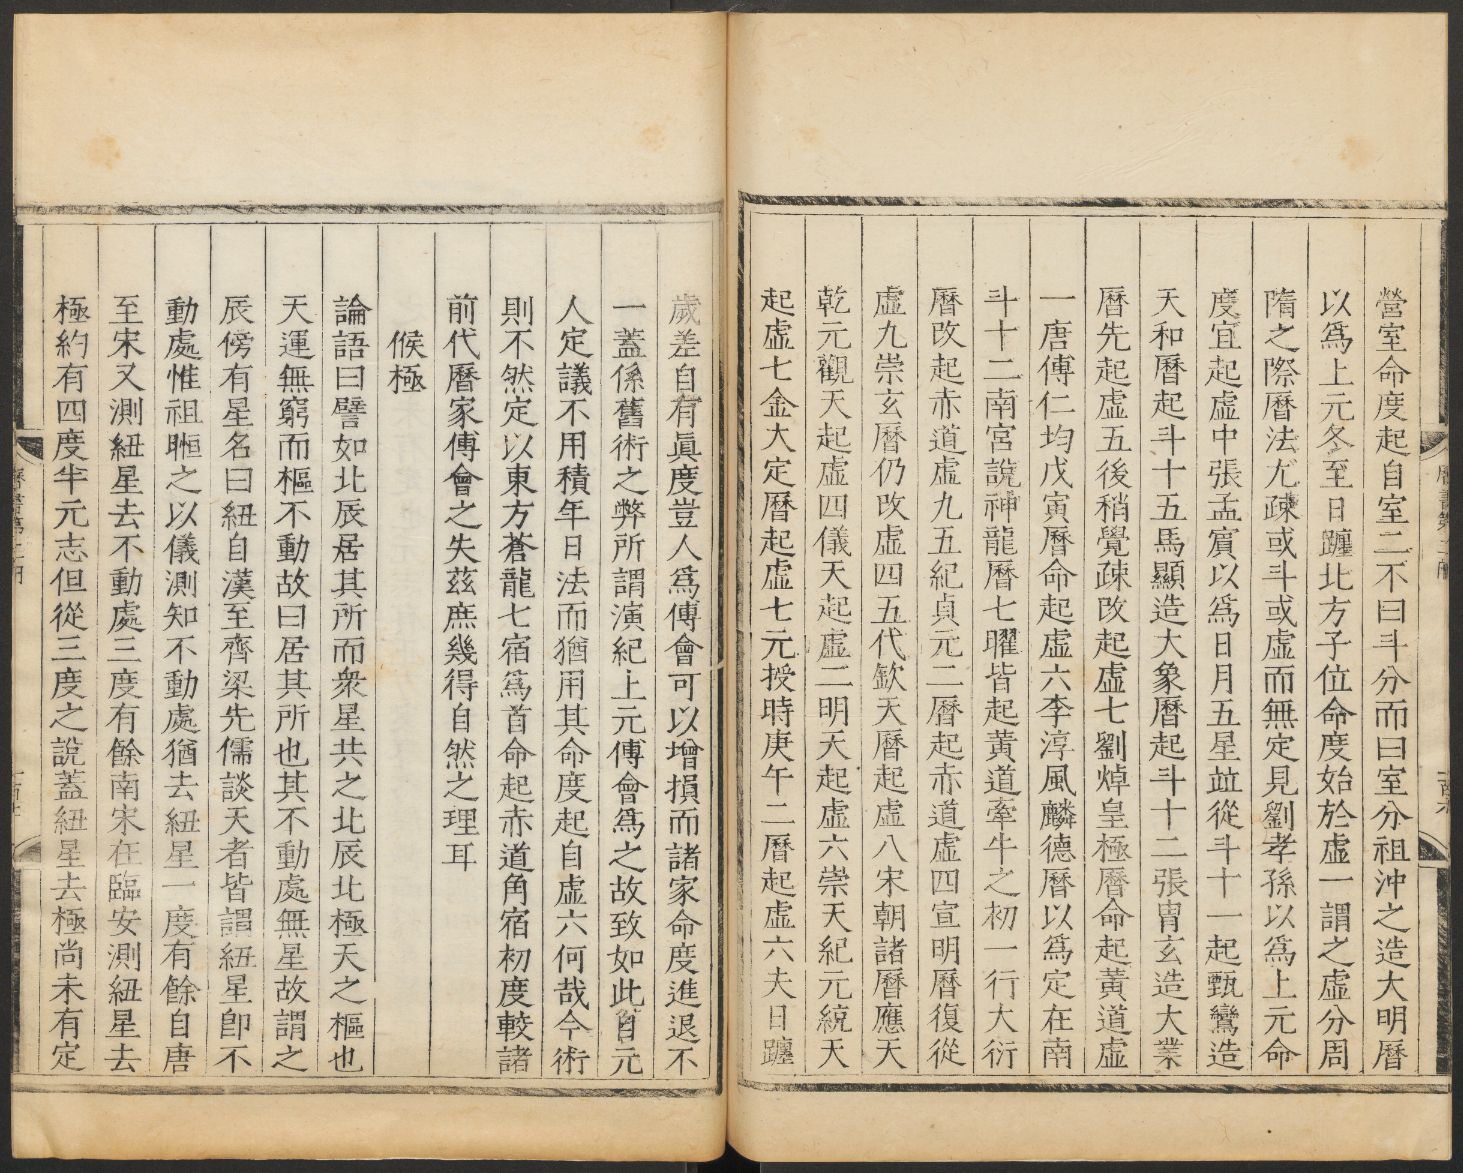 營室命度起自室二不曰斗分而曰室分祖沖之造大明曆
以爲上元冬至日躔北方子位命度始於虛一謂之虛分周
隋之際曆法尤疎或斗或虛而無定見劉孝孫以爲上元命
度宜起虛中張孟賓以爲日月五星竝從斗十一起甄鸞造
天和曆起斗十五馬顯造大象曆起斗十二張胄玄造大業
曆先起虛五後稍覺疎改起虛七劉焯皇極曆命起黃道虛
一唐傅仁均戊寅曆命起虛六李淳風麟德曆以爲定在南
斗十二南宮說神龍曆七曜皆起黃道牽牛之初一行大衍
曆改起赤道虛九五紀貞元二曆起赤道虛四宣明曆復從
虛九崇玄曆仍改虛四五代欽天曆起虛八宋朝諸曆應天
乾元觀天起虛四儀天起虛二明天起虛六崇天紀元統天
起虛七金大定曆起虛七元授時庚午二曆起虛六夫日躔
歲差自有眞度豈人爲傅會可以增損而諸家命度進退不
一蓋係舊術之弊所謂演紀上元傅會爲之故致如此自元
人定議不用積年日法而猶用其命度起自虛六何哉今術
則不然定以東方蒼龍七宿爲首命起赤道角宿初度較諸
前代曆家傅會之失茲庶幾得自然之理耳
候極
論語曰譬如北辰居其所而衆星共之北辰北極天之樞也
天運無窮而樞不動故曰居其所也其不動處無星故謂之
辰傍有星名曰紐自漢至齊梁先儒談天者皆謂紐星卽不
動處惟祖暅之以儀測知不動處猶去紐星一度有餘自唐
至宋又測紐星去不動處三度有餘南宋在臨安測紐星去
極約有四度半元志但從三度之說蓋紐星去極尚未有定